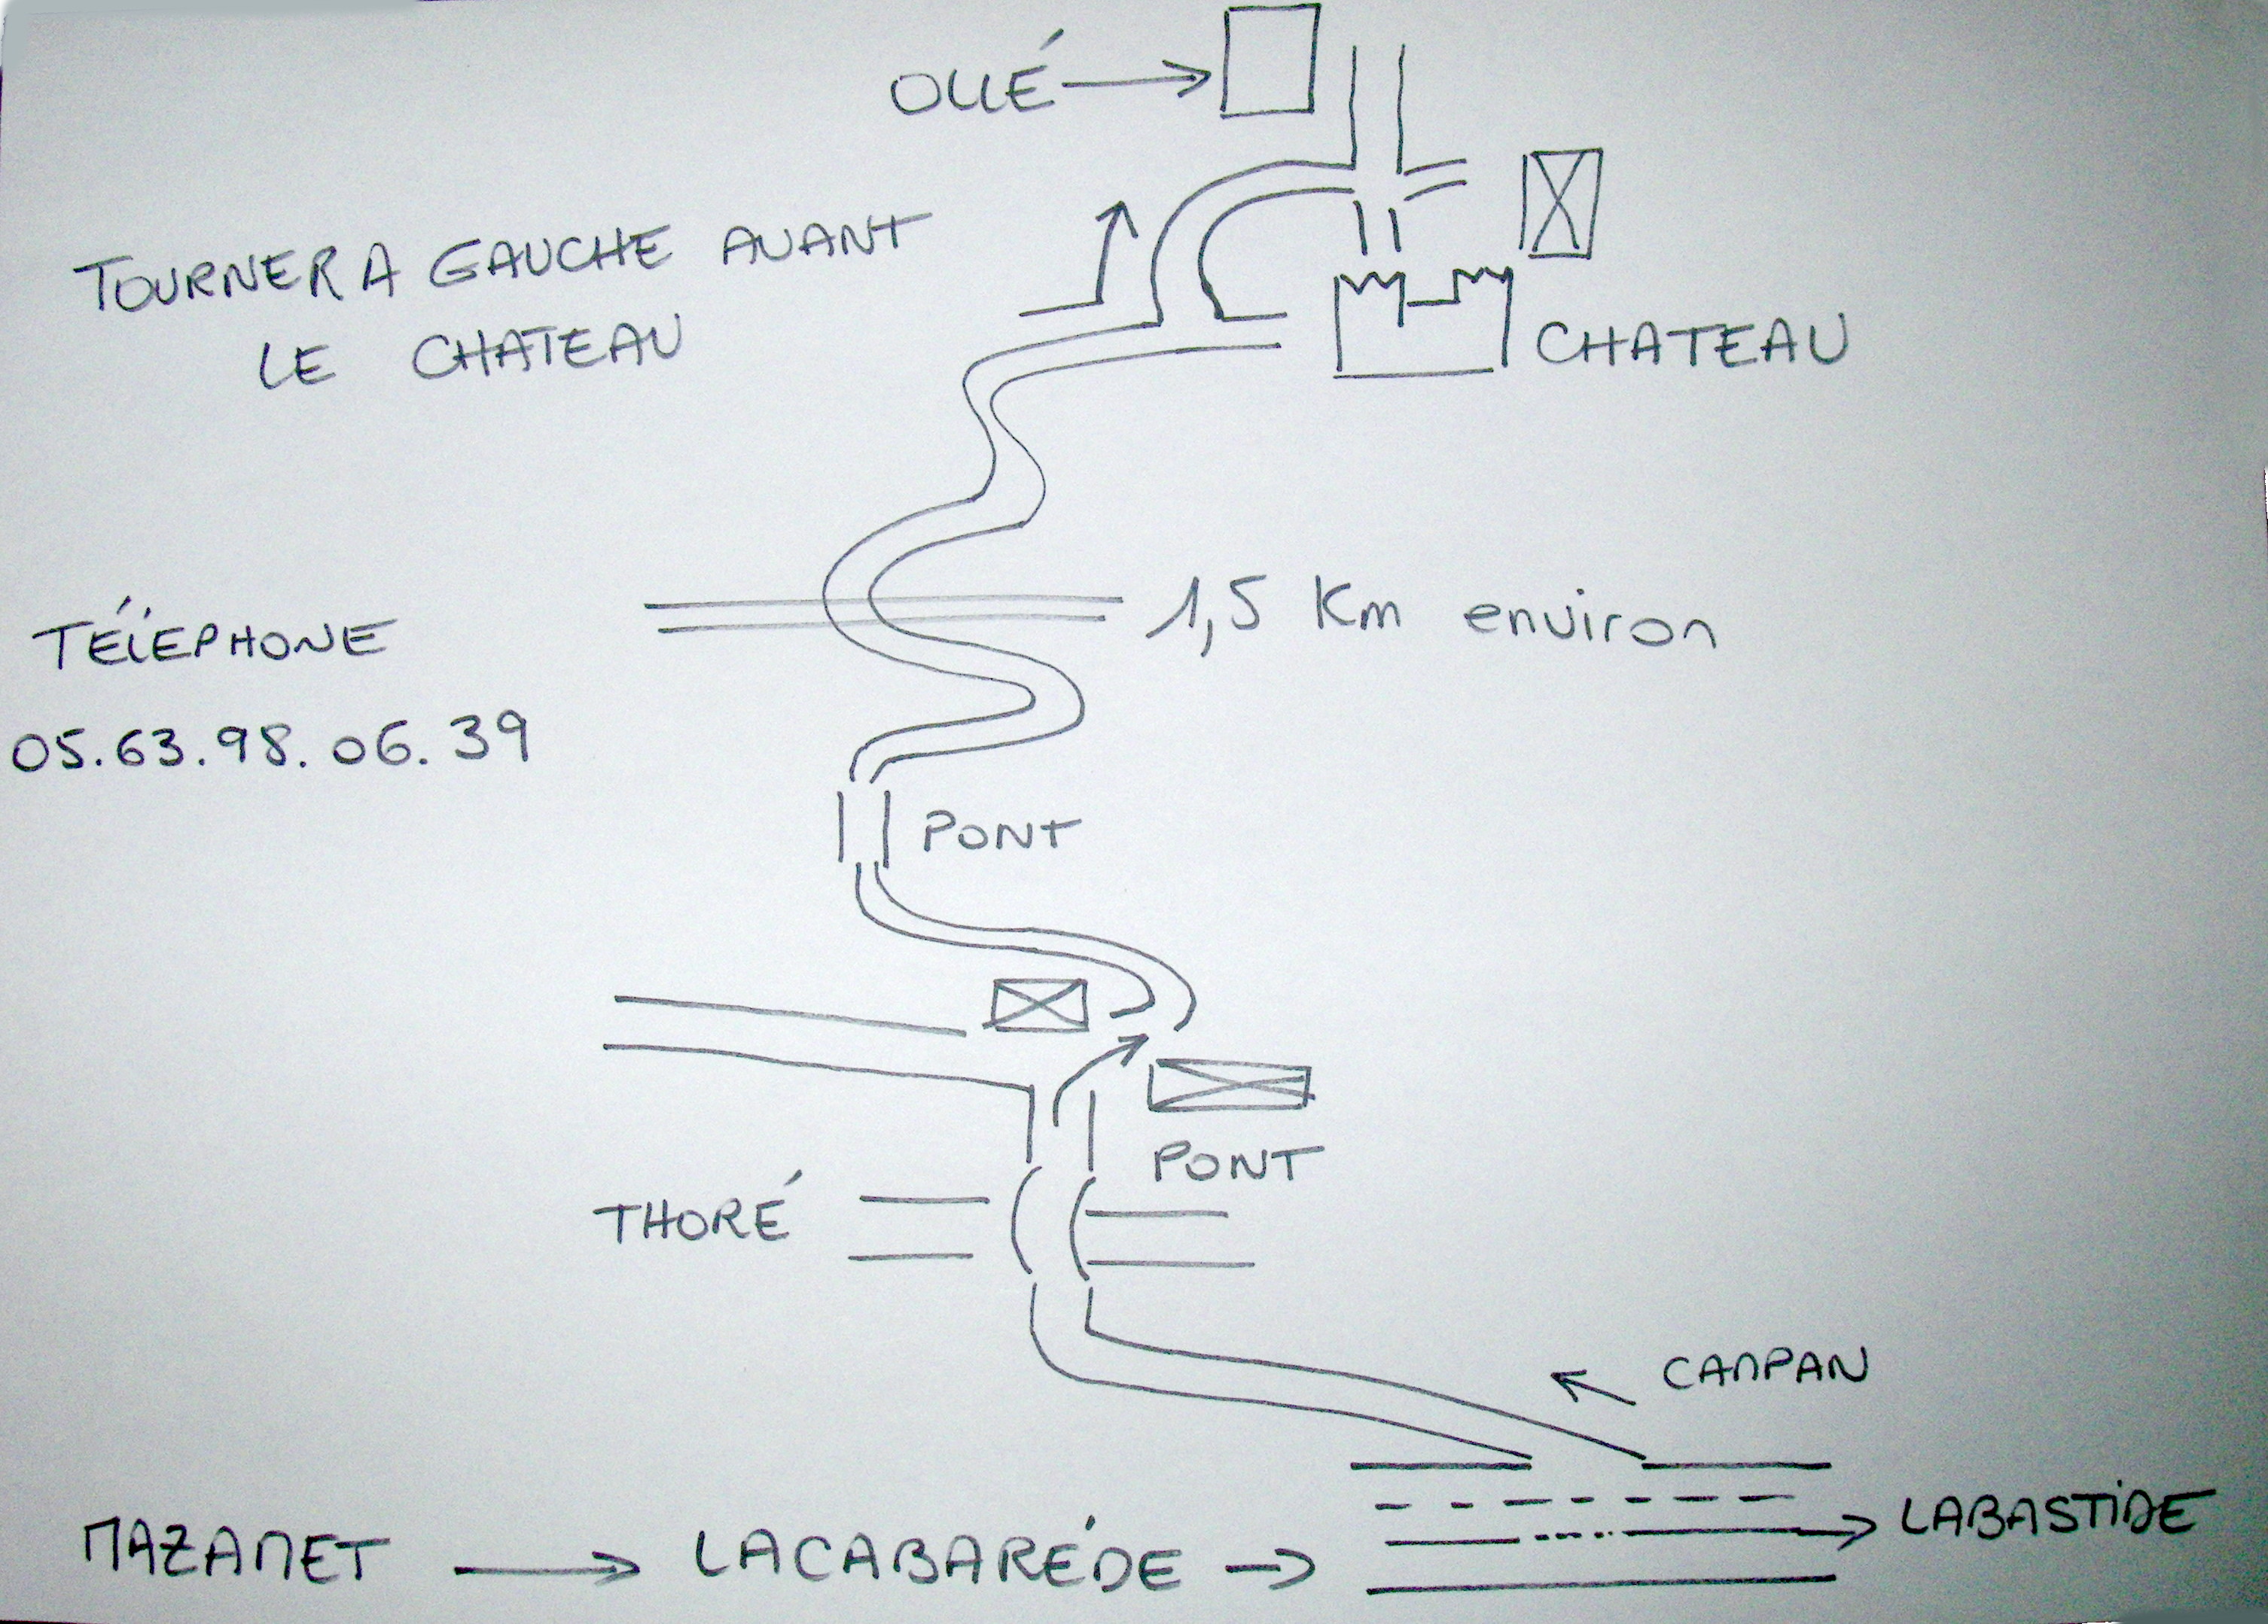 OLLÉ
TOURNER A GAUCHE AVANT
LE CHATEAU
CHATEAU
1,5 Km environ
TÉLEPHONE
05.63.98.06.39
PONT
PONT
THORÉ
CAMPAN
MAZAMET → LACABARÉDE → LABASTIDE